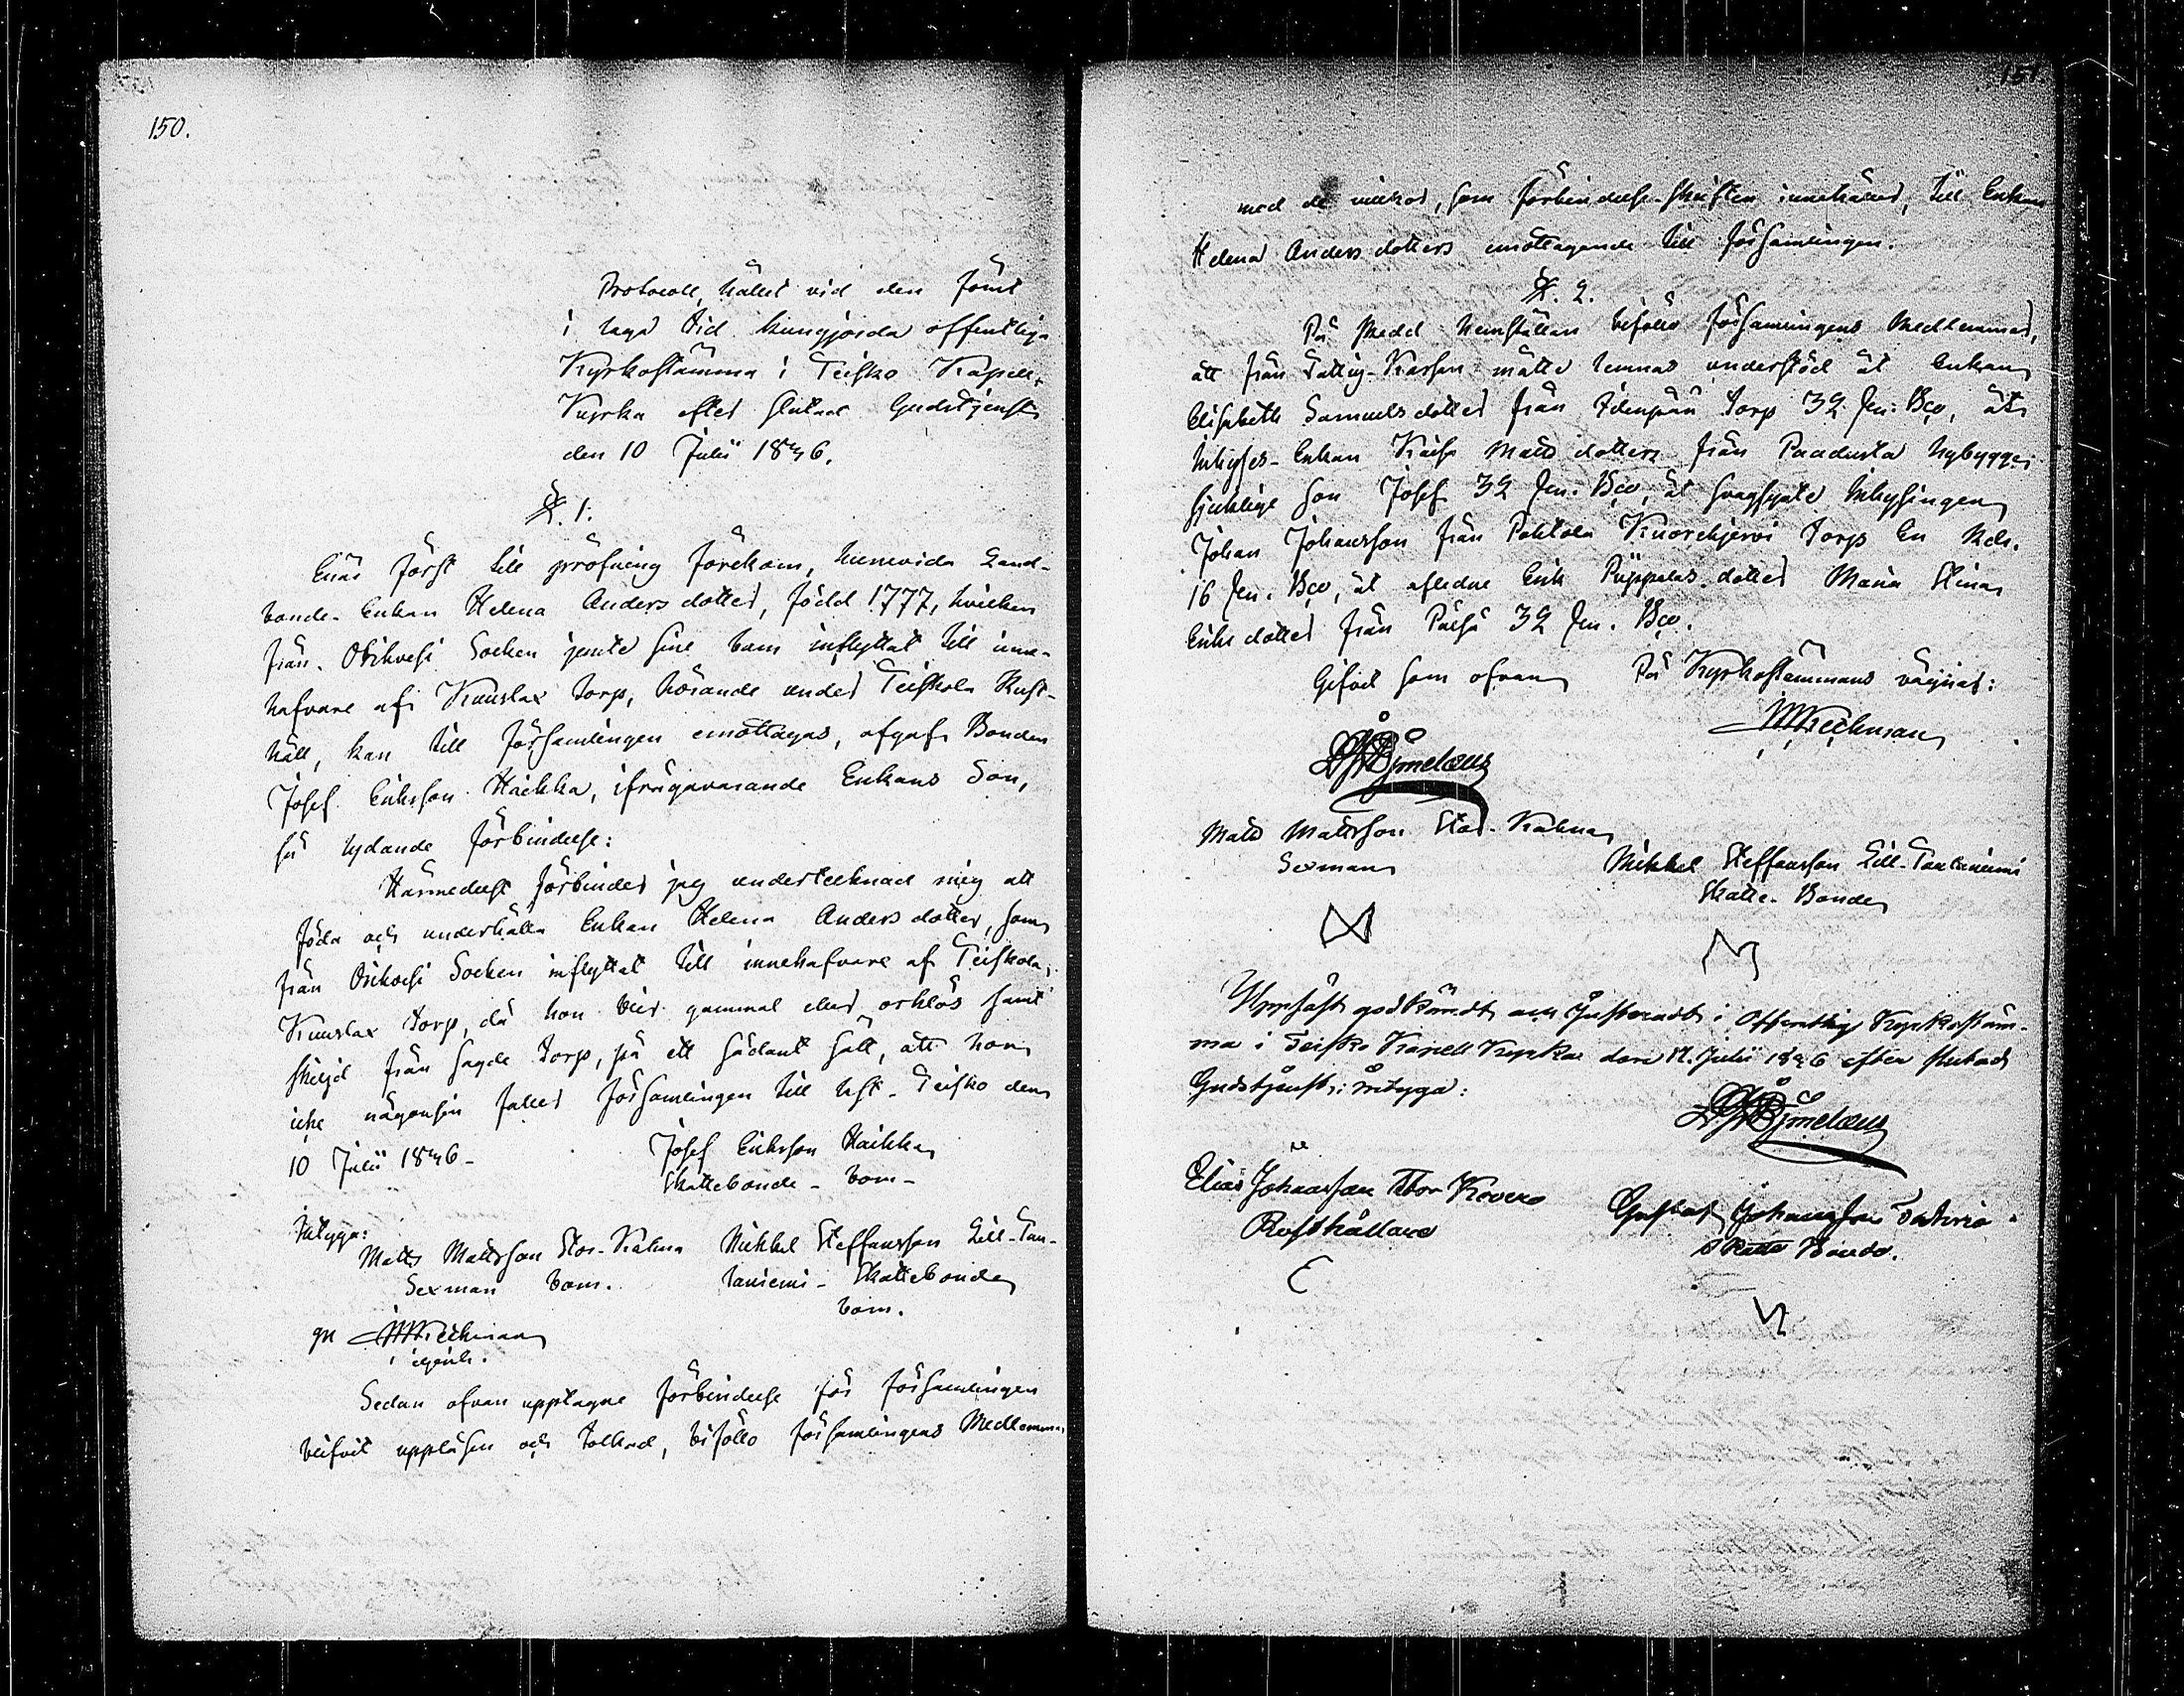 150.
Protocoll, hållet vid den förut
i laga tid kungjorda offentliga
Kyrkostämma i Teisko Kapell-
Kyrka efter slutad Gudstjenst
den 10 Julii 1836.
§. 1.
Enär först till pröfning förekom, huruvida Land-
bonde-Enkan Helena Anders dotter, född 1777, hvilken
från Orihvesi Socken jemte sine barn inflyttat till inne-
hafvare af Kuuslax torp, hörande under Teiskola Rust-
håll, kan till församlingen emottagas, afgaf Bonden
Josef Eriksson Haikka, ifrågavarande Enkans Son,
så lydande förbindelse:
Härmedelst förbinder jag undertecknad mig att
föda och underhålla Enkan Helena Anders dotter, som
från Orihvesi Socken inflyttat till innehafvare af Teiskola
Kuuslax torp, då hon blir gammal eller orklös samt
skiljd från sagde torp, på ett sådant sätt, att hon
icke någonsin faller församlingen till last. Teisko den
10 Julii 1836.
Josef Eriksson Haikka
Skattebonde - bom-
Intyga:
Matts Mattsson Stor-Kulma Mikkel Steffansson Lill-Tau-
Sexman bom. taniemi - Skattebonde
bom.
Sedan ofvan upptagne förbindelse för församlingen
blifvit uppläsen och tolkad, biföllo församlingens Medlemmar
151
med de vilkor, som förbindelse-skriften innehåller, till Enkan
Helena Anders dotters emottagande till församlingen.
§. 2.
På skedd hemställan biföllo församlingens Medlemmar,
att från Fattig-Kassan måtte lemnas understöd åt Enkan
Elisabeth Samuels dotter från torp 32 sk. Bco, åt
Inhyses-Enkan Kaisa Matts dotters från Paadusta Nybygge
sjuklige son Josef 32 sk. Bco, åt svagsynte Inhysingen
Johan Johansson från Pohtola Kuorehjervi torp En Rdr.
16 sk. Bco, åt aflidne Erik Pyppelas dotter Maria Stina
Eriks dotter från 32 sk. Bco.
Gifvit som ofvan På Kyrkostämmans vägnar:
Matts Mattsson Stor-Kulma
Sexman
Mikkel Steffansson Lill-Tautaniemi
Skatte-Bonde
Uppläst godkändt och justeradt i Offentlig Kyrkostäm-
ma i Teisko Kapell Kyrka den 17. Julii 1836 efter slutad
Gudstjenst; intyga:
Elias Johansson Stor Kovero
Rusthållare
Gustaf Johansson
Skatte Bonde.